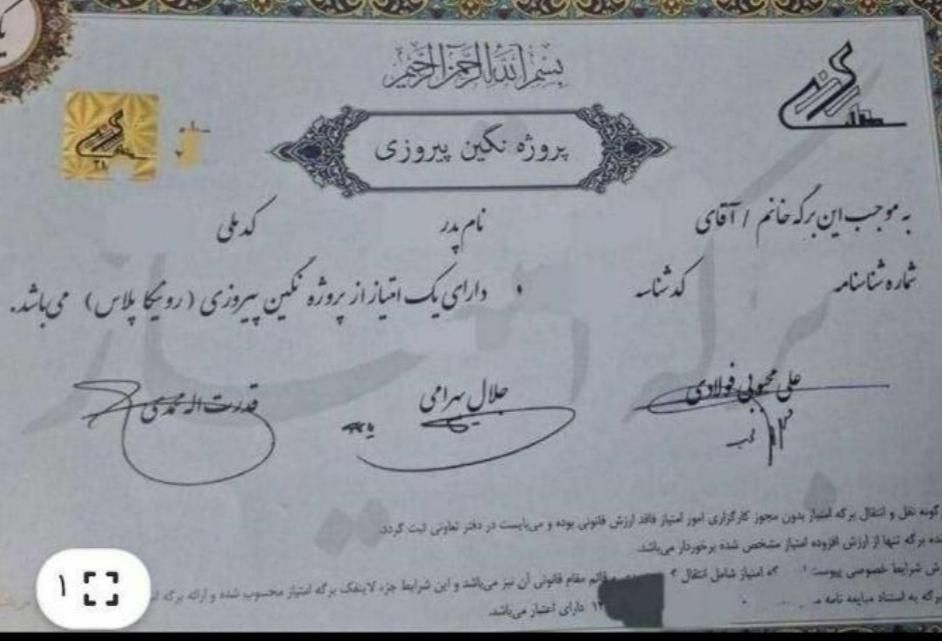 بسم الله الرحمن الرحیم
پروژه نگین پیروزی
۲۸
به موجب این برگه خانم / آقای نام پدر کد ملی
شماره شناسنامه کد شناسه و دارای یک امتیاز از پروژه نگین پیروزی (رونیکا پلاس) می‌باشد.
علی محبوبی فولادی جلال بهرامی قدرت اله محمدی
گونه نقل و انتقال برگه امتیاز بدون مجوز کارگزاری امور امتیاز فاقد ارزش قانونی بوده و می‌بایست در دفتر تعاونی ثبت گردد.
ده برگه تنها از ارزش افزوده امتیاز مشخص شده برخوردار می‌باشد.
ش شرایط خصوصی پیوست امتیاز شامل انتقال قائم مقام قانونی آن نیز می‌باشد و این شرایط جزء لاینفک برگه امتیاز محسوب شده و ارائه برگه
برگه به استناد مبایعه نامه دارای اعتبار می‌باشد.
۱